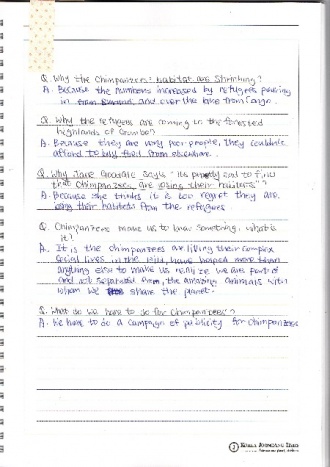 Q. Why the Chimpanzees' habitat are Shrinking?
A. Because the numbers increased by refugees pouring
in from Burundi and over the lake from Congo.
Q. Why the refugees are coming in the forested
highlands of Gombe?
A. Because they are very poor people, they couldn't
afford to buy food from elsewhere.
Q. Why Jane Goodall says "its and to find
that Chimpanzees are losing their habitats"?
A. Because she thinks it is too regret they are
losing their habitats from the refugees
Q. Chimpanzees make us to know something. what is
it?
A. It is the chimpanzees are living their complex
social lives in the wild, have helped more than
anything else to make us realize we are part of
and not separated from, the amazing animals with
whom we share the planet.
Q. What do we have to do for Chimpanzees?
A. We have to do a campaign of publicity for chimpanzees